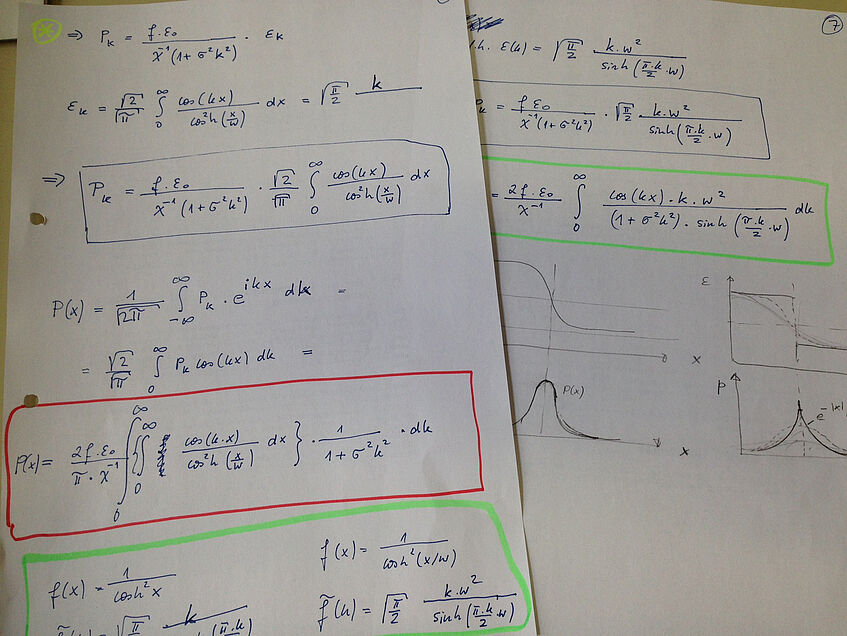 ⇒ P_k = f·ε₀ / χ⁻¹(1+σ²k²) · ε_k
ε_k = √2/√π ∫₀^∞ cos(kx) / cos²h(x/w) dx = √(π/2) k
⇒ P_k = f·ε₀ / χ⁻¹(1+σ²k²) · √2/√π ∫₀^∞ cos(kx) / cos²h(x/w) dx
P(x) = 1/√2π ∫_{-∞}^∞ P_k · e^{ikx} dk =
= √2/√π ∫₀^∞ P_k cos(kx) dk =
P(x) = 2f·ε₀ / π·χ⁻¹ ∫₀^∞ { ∫₀^∞ cos(k·x) / cos²h(x/w) dx } · 1 / 1+σ²k² · dk
f(x) = 1 / cosh²x
f(x) = 1 / cosh²(x/w)
f̃(k) = √(π/2) k·w² / sinh(π·k/2 ·w)
7
ε(k) = √(π/2) k·w² / sinh(π·k/2 ·w)
= f·ε₀ / χ⁻¹(1+σ²k²) · √(π/2) k·w² / sinh(π·k/2 ·w)
= 2f·ε₀ / χ⁻¹ ∫₀^∞ cos(kx)·k·w² / (1+σ²k²)·sinh(π·k/2 ·w) dk
x
ε
P(x)
x
P
e^{-|x|